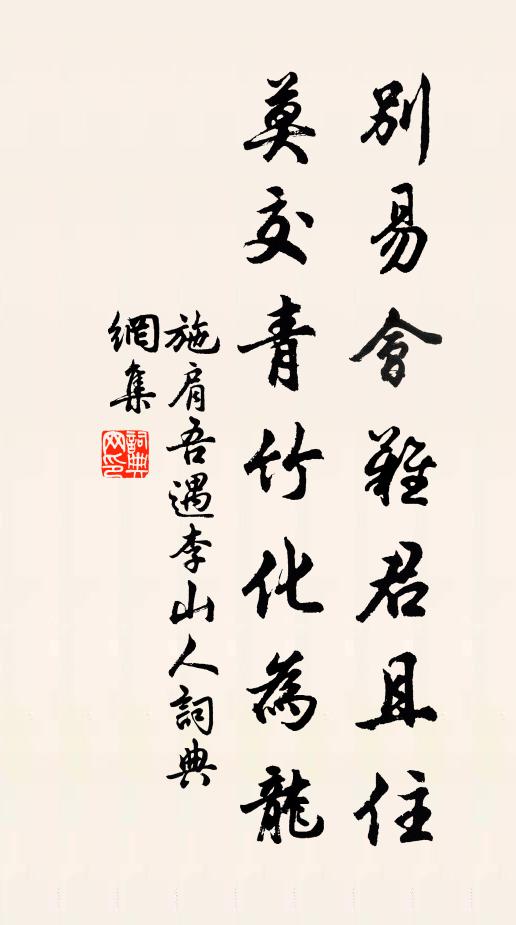 別易會難君且住
莫交青竹化為龍
施肩吾遇李山人詞典
網集
詞典
网印